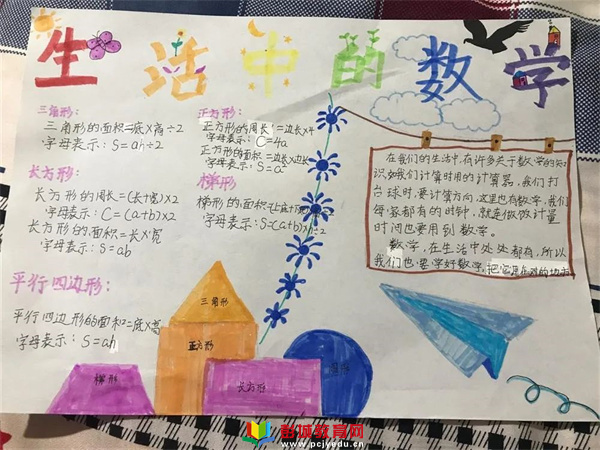 生活中的数学
三角形：
三角形的面积=底×高÷2
字母表示：S=ah÷2
长方形：
长方形的周长=(长+宽)×2
字母表示：C=(a+b)×2
长方形的面积=长×宽
字母表示：S=ab
平行四边形：
平行四边形的面积=底×高
字母表示：S=ah
正方形：
正方形的周长=边长×4
字母表示：C=4a
正方形的面积=边长×边长
字母表示：S=a²
梯形
梯形的面积=(上底+下底)×高÷2
字母表示：S=(a+b)×h÷2
在我们的生活中,有许多关于数学的知
识,如我们计算时用的计算器,我们打
台球时,要计算方向,这里也有数学,我们
每家都有的时钟,就连做饭计量
时间也要用到数学。
数学,在生活中处处都有,所以
我们也要学好数学,
三角形
正方形
长方形
梯形
圆形
彭城教育网
www.pcjyedu.cn